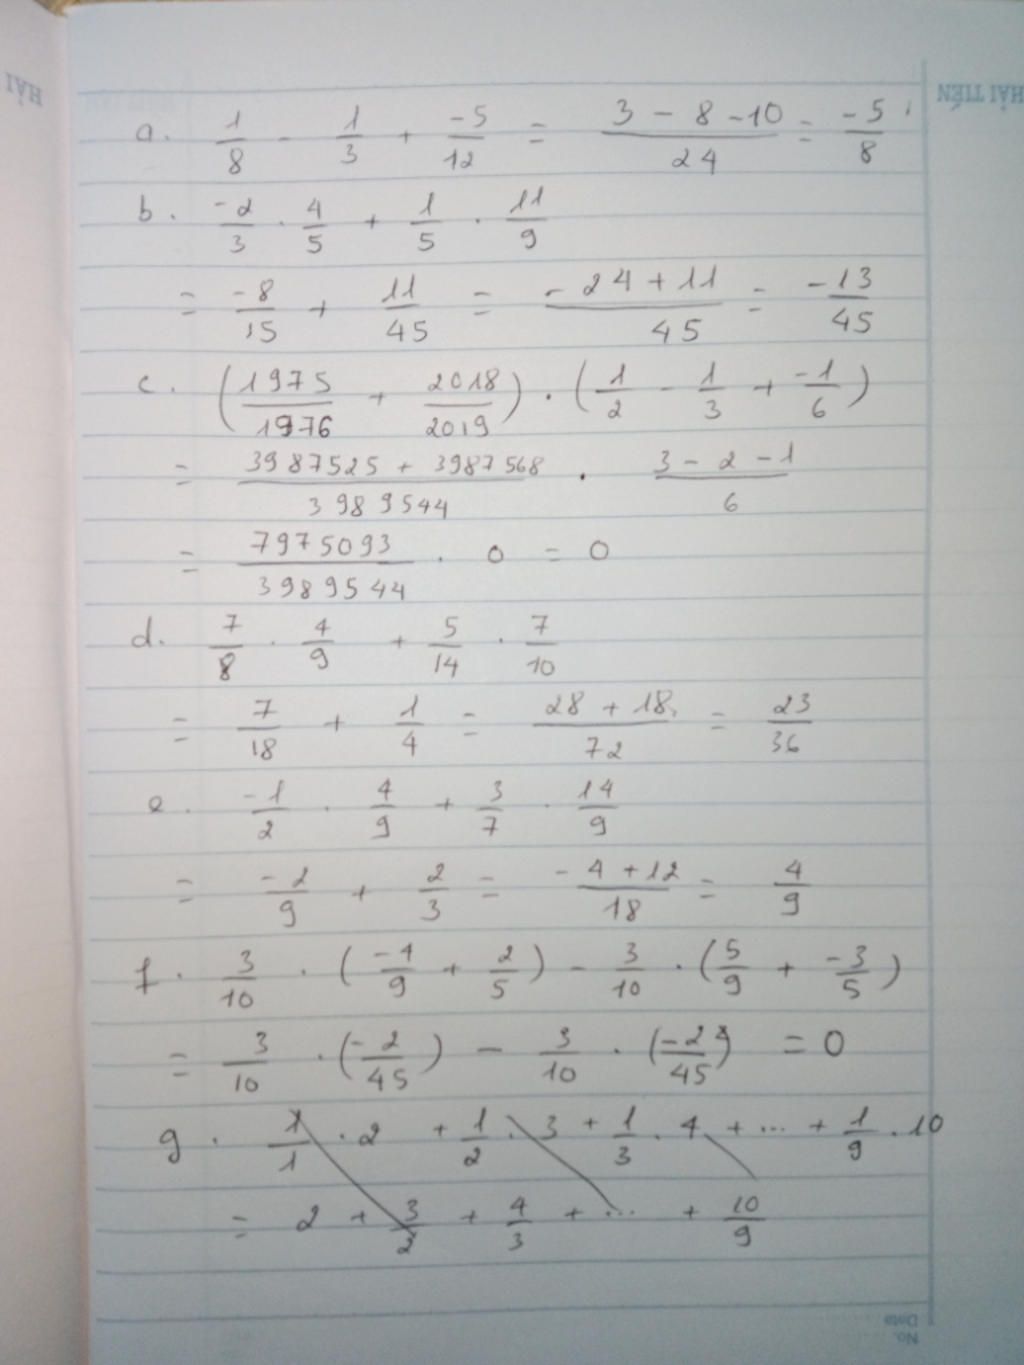 HẢI
HẢI TIẾN
a. 1/8 - 1/3 + -5/12 = (3 - 8 - 10)/24 = -5/8
b. -2/3 . 4/5 + 1/5 . 11/9
= -8/15 + 11/45 = (-24 + 11)/45 = -13/45
c. (1975/1976 + 2018/2019) . (1/2 - 1/3 + -1/6)
= (3987525 + 3987568)/3989544 . (3 - 2 - 1)/6
= 7975093/3989544 . 0 = 0
d. 7/8 . 4/9 + 5/14 . 7/10
= 7/18 + 1/4 = (28 + 18)/72 = 23/36
e. -1/2 . 4/9 + 3/7 . 14/9
= -2/9 + 2/3 = (-4 + 12)/18 = 4/9
f. 3/10 . (-4/9 + 2/5) - 3/10 . (5/9 + -3/5)
= 3/10 . (-2/45) - 3/10 . (-2/45) = 0
g. 1/1 . 2 + 1/2 . 3 + 1/3 . 4 + ... + 1/9 . 10
= 2 + 3/2 + 4/3 + ... + 10/9
No.
Date